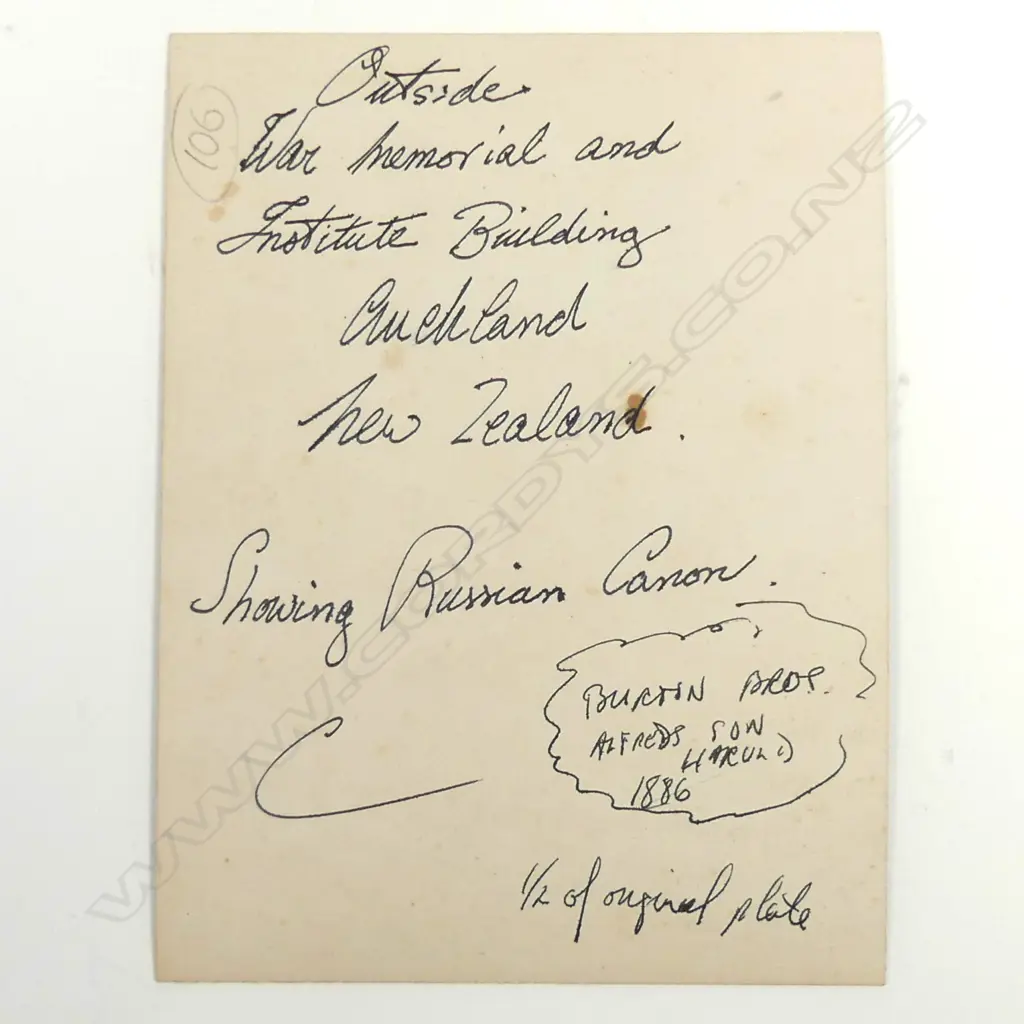 106
Outside
War Memorial and
Institute Building
Auckland
New Zealand.
Showing Russian Canon.
BURTON BROS.
ALFREDS SON
HAROLD
1886
1/2 of original plate
WWW.CORDYS.CO.NZ